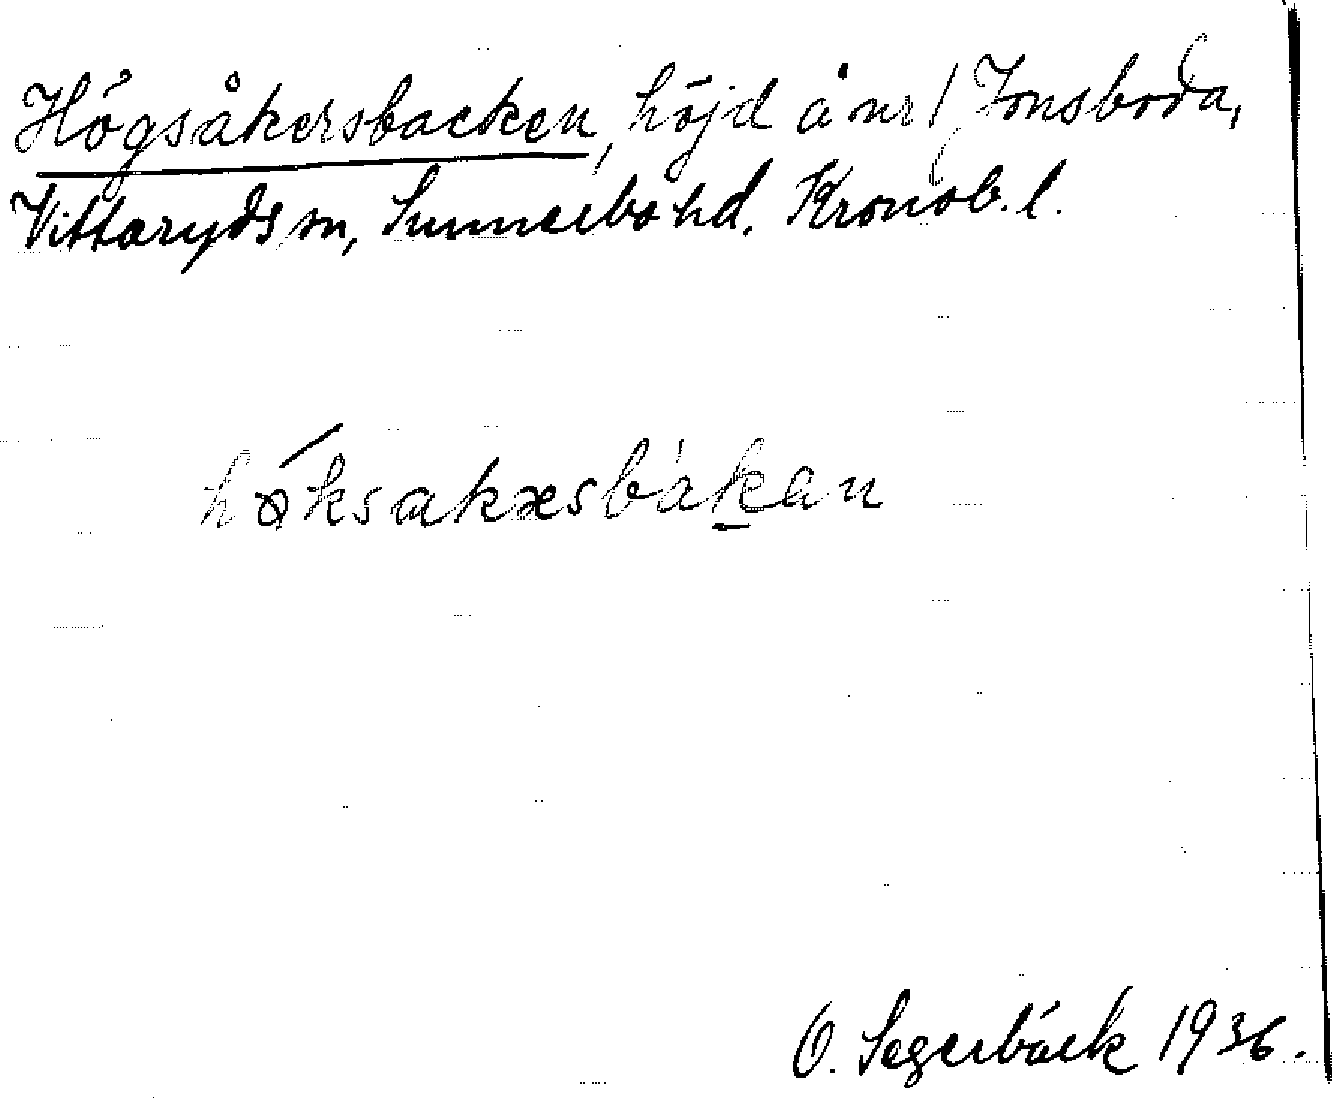 Högsåkersbacken, höjd å nr 1 Jonsboda,
Vittaryds sn, Sunnerbo hd. Kronob. l.
hǿksakæsbákan
O. Segerbäck 1936.